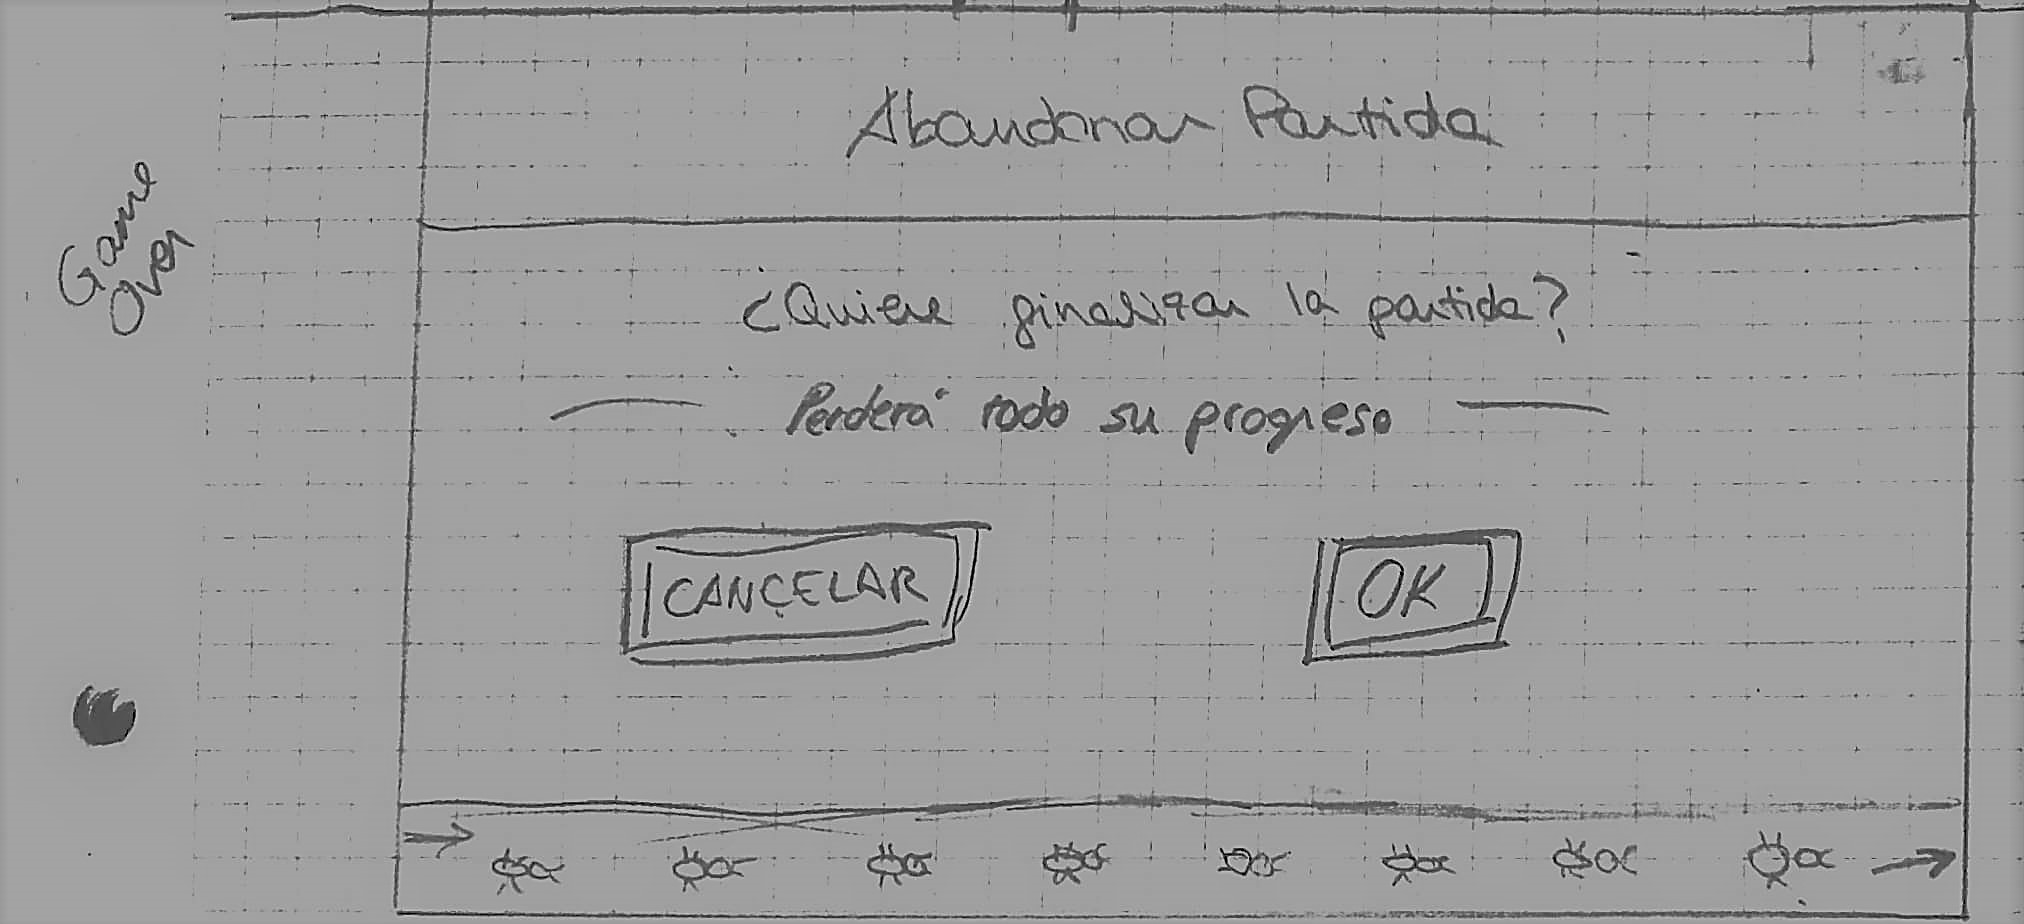 Game
Over
Abandonar Partida
¿Quiere finalizar la partida?
Perderá todo su progreso
CANCELAR
OK